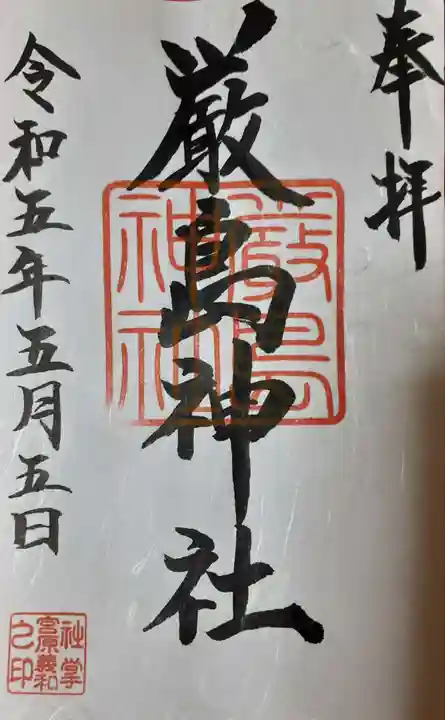 奉拝
厳島神社
嚴島
神社
令和五年五月五日
社掌
宮原義和
之印